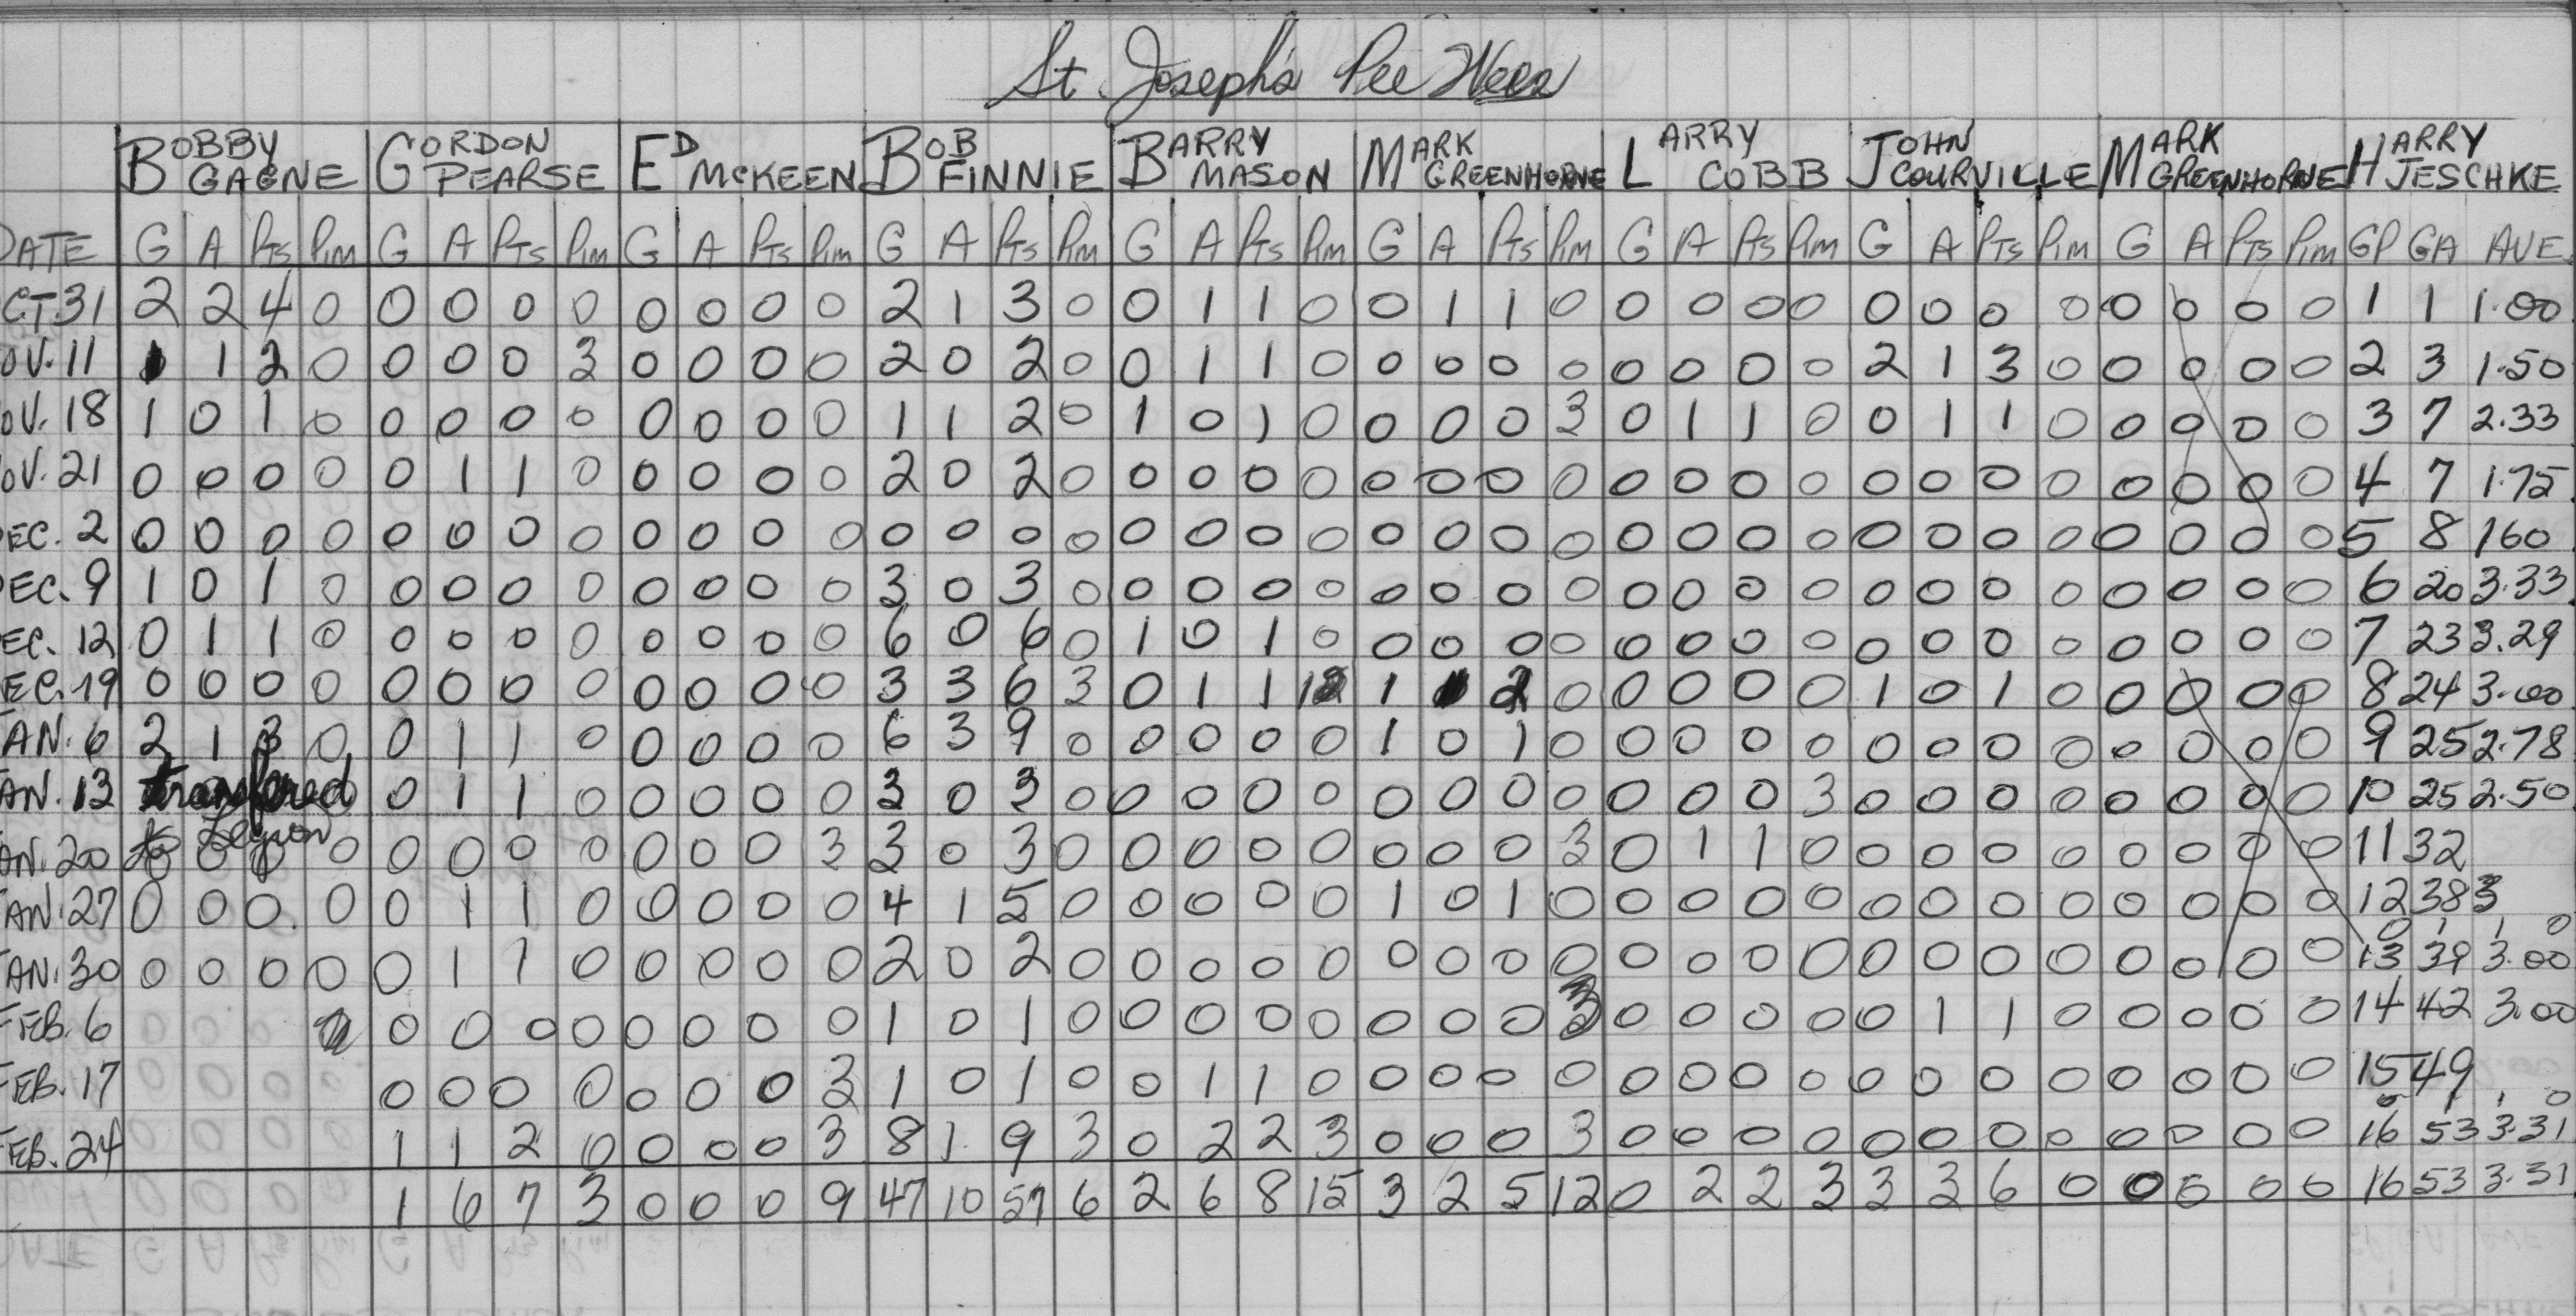 St. Joseph's Pee Wees
BOBBY GAGNE GORDON PEARSE ED McKEEN BOB FINNIE BARRY MASON MARK GREENHORNE LARRY COBB JOHN COURVILLE MARK GREENHORNE HARRY JESCHKE
DATE G A PTS PIM G A PTS PIM G A PTS PIM G A PTS PIM G A PTS PIM G A PTS PIM G A PTS PIM G A PTS PIM G A PTS PIM GP GA AVE.
CT.31 2 2 4 0 0 0 0 0 0 0 0 0 2 1 3 0 0 1 1 0 0 1 1 0 0 0 0 0 0 0 0 0 0 0 0 0 1 1 1.00
OV. 11 1 1 2 0 0 0 0 3 0 0 0 0 2 0 2 0 0 1 1 0 0 0 0 0 0 0 0 0 2 1 3 0 0 0 0 0 2 3 1.50
OV. 18 1 0 1 0 0 0 0 0 0 0 0 0 1 1 2 0 1 0 1 0 0 0 0 3 0 1 1 0 0 1 1 0 0 0 0 0 3 7 2.33
OV. 21 0 0 0 0 0 1 1 0 0 0 0 0 2 0 2 0 0 0 0 0 0 0 0 0 0 0 0 0 0 0 0 0 0 0 0 0 4 7 1.75
EC. 2 0 0 0 0 0 0 0 0 0 0 0 0 0 0 0 0 0 0 0 0 0 0 0 0 0 0 0 0 0 0 0 0 0 0 0 0 5 8 160
EC. 9 1 0 1 0 0 0 0 0 0 0 0 0 3 0 3 0 0 0 0 0 0 0 0 0 0 0 0 0 0 0 0 0 0 0 0 0 6 20 3.33
EC. 12 0 1 1 0 0 0 0 0 0 0 0 0 6 0 6 0 1 0 1 0 0 0 0 0 0 0 0 0 0 0 0 0 0 0 0 0 7 23 3.29
EC. 19 0 0 0 0 0 0 0 0 0 0 0 0 3 3 6 3 0 1 1 12 1 1 2 0 0 0 0 0 1 0 1 0 0 0 0 0 8 24 3.00
AN. 6 2 1 3 0 0 1 1 0 0 0 0 0 6 3 9 0 0 0 0 0 1 0 1 0 0 0 0 0 0 0 0 0 0 0 0 0 9 25 2.78
AN. 13 transfered 0 1 1 0 0 0 0 0 3 0 3 0 0 0 0 0 0 0 0 0 0 0 0 3 0 0 0 0 0 0 0 0 10 25 2.50
to Legion
AN. 20 0 0 0 0 0 0 0 0 0 0 0 3 3 0 3 0 0 0 0 0 0 0 0 3 0 1 1 0 0 0 0 0 0 0 0 0 11 32
AN. 27 0 0 0 0 0 1 1 0 0 0 0 0 4 1 5 0 0 0 0 0 1 0 1 0 0 0 0 0 0 0 0 0 0 0 0 0 12 38 3
0 1 1 0
AN. 30 0 0 0 0 0 1 1 0 0 0 0 0 2 0 2 0 0 0 0 0 0 0 0 0 0 0 0 0 0 0 0 0 0 0 0 0 13 39 3.00
FEB. 6 0 0 0 0 0 0 0 0 1 0 1 0 0 0 0 0 0 0 0 3 0 0 0 0 0 1 1 0 0 0 0 0 14 42 3.00
FEB. 17 0 0 0 0 0 0 0 3 1 0 1 0 0 1 1 0 0 0 0 0 0 0 0 0 0 0 0 0 0 0 0 0 15 49
0 1 1 0
FEB. 24 1 1 2 0 0 0 0 3 8 1 9 3 0 2 2 3 0 0 0 3 0 0 0 0 0 0 0 0 0 0 0 0 16 53 3.31
1 6 7 3 0 0 0 9 47 10 57 6 2 6 8 15 3 2 5 12 0 2 2 3 3 3 6 0 0 0 0 0 16 53 3.31